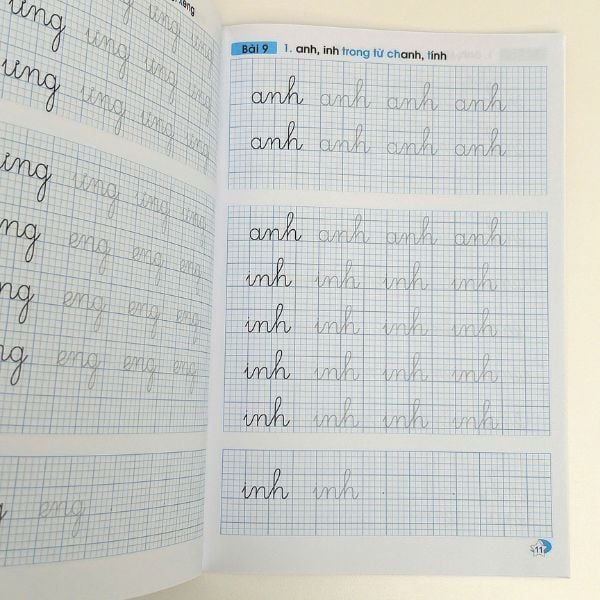 ưng ưng ưng ưng
ưng ưng ưng ưng
ưng ưng ưng ưng
eng eng eng
eng eng eng
eng eng eng
eng
Bài 9 1. anh, inh trong từ chanh, tính
anh anh anh anh
anh anh anh anh
anh anh anh anh
inh inh inh inh
inh inh inh inh
inh inh inh inh
inh inh inh inh
inh inh
11